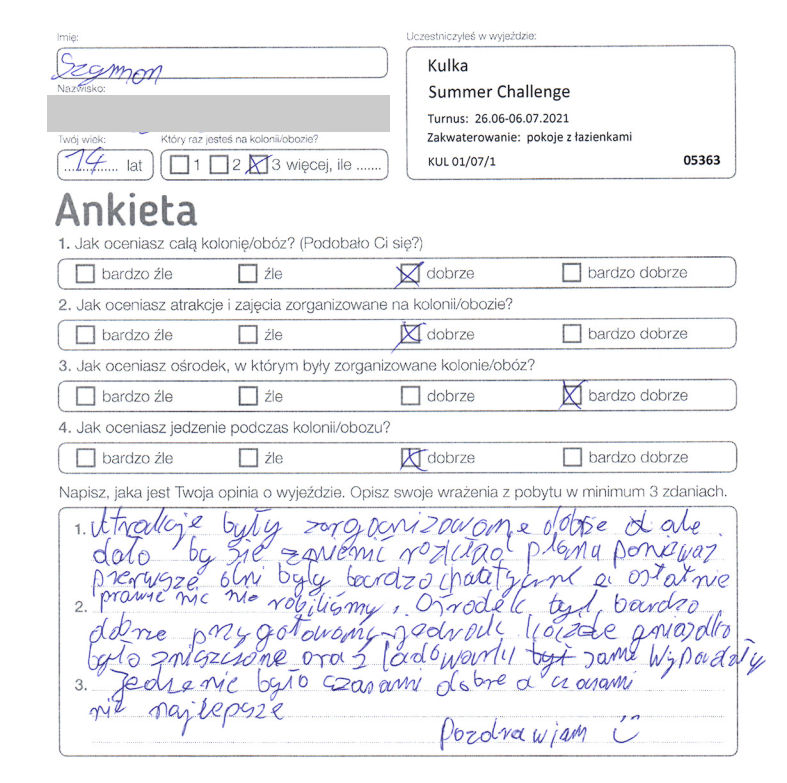 Imię:
Szymon
Nazwisko:
Twój wiek:
Który raz jesteś na kolonii/obozie?
14 lat
1 2 3 więcej, ile .......
Uczestniczyłeś w wyjeździe:
Kulka
Summer Challenge
Turnus: 26.06-06.07.2021
Zakwaterowanie: pokoje z łazienkami
KUL 01/07/1 05363
Ankieta
1. Jak oceniasz całą kolonię/obóz? (Podobało Ci się?)
bardzo źle źle dobrze bardzo dobrze
2. Jak oceniasz atrakcje i zajęcia zorganizowane na kolonii/obozie?
bardzo źle źle dobrze bardzo dobrze
3. Jak oceniasz ośrodek, w którym były zorganizowane kolonie/obóz?
bardzo źle źle dobrze bardzo dobrze
4. Jak oceniasz jedzenie podczas kolonii/obozu?
bardzo źle źle dobrze bardzo dobrze
Napisz, jaka jest Twoja opinia o wyjeździe. Opisz swoje wrażenia z pobytu w minimum 3 zdaniach.
1. Atrakcje były zorganizowane dobrze ale
dało by się zmienić rozkład planu ponieważ
pierwsze dni były bardzo chaotyczne a ostatnie
prawie nic nie robiliśmy. Ośrodek był bardzo
2.
dobrze przygotowany jednak każde gniazdko
było zniszczone oraz ładowarki same wypadały
3. Jedzenie było czasami dobre a czasami
nie najlepsze
Pozdrawiam